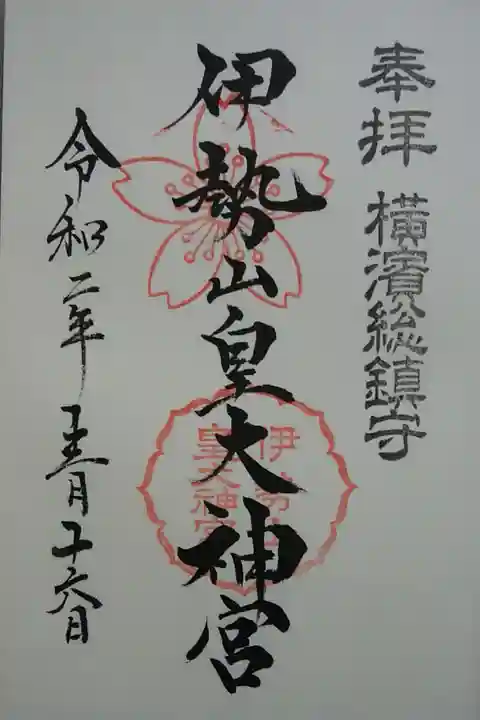 奉拝 横濱総鎮守
伊勢山皇大神宮
伊勢山
皇大神宮
令和二年 月十六日